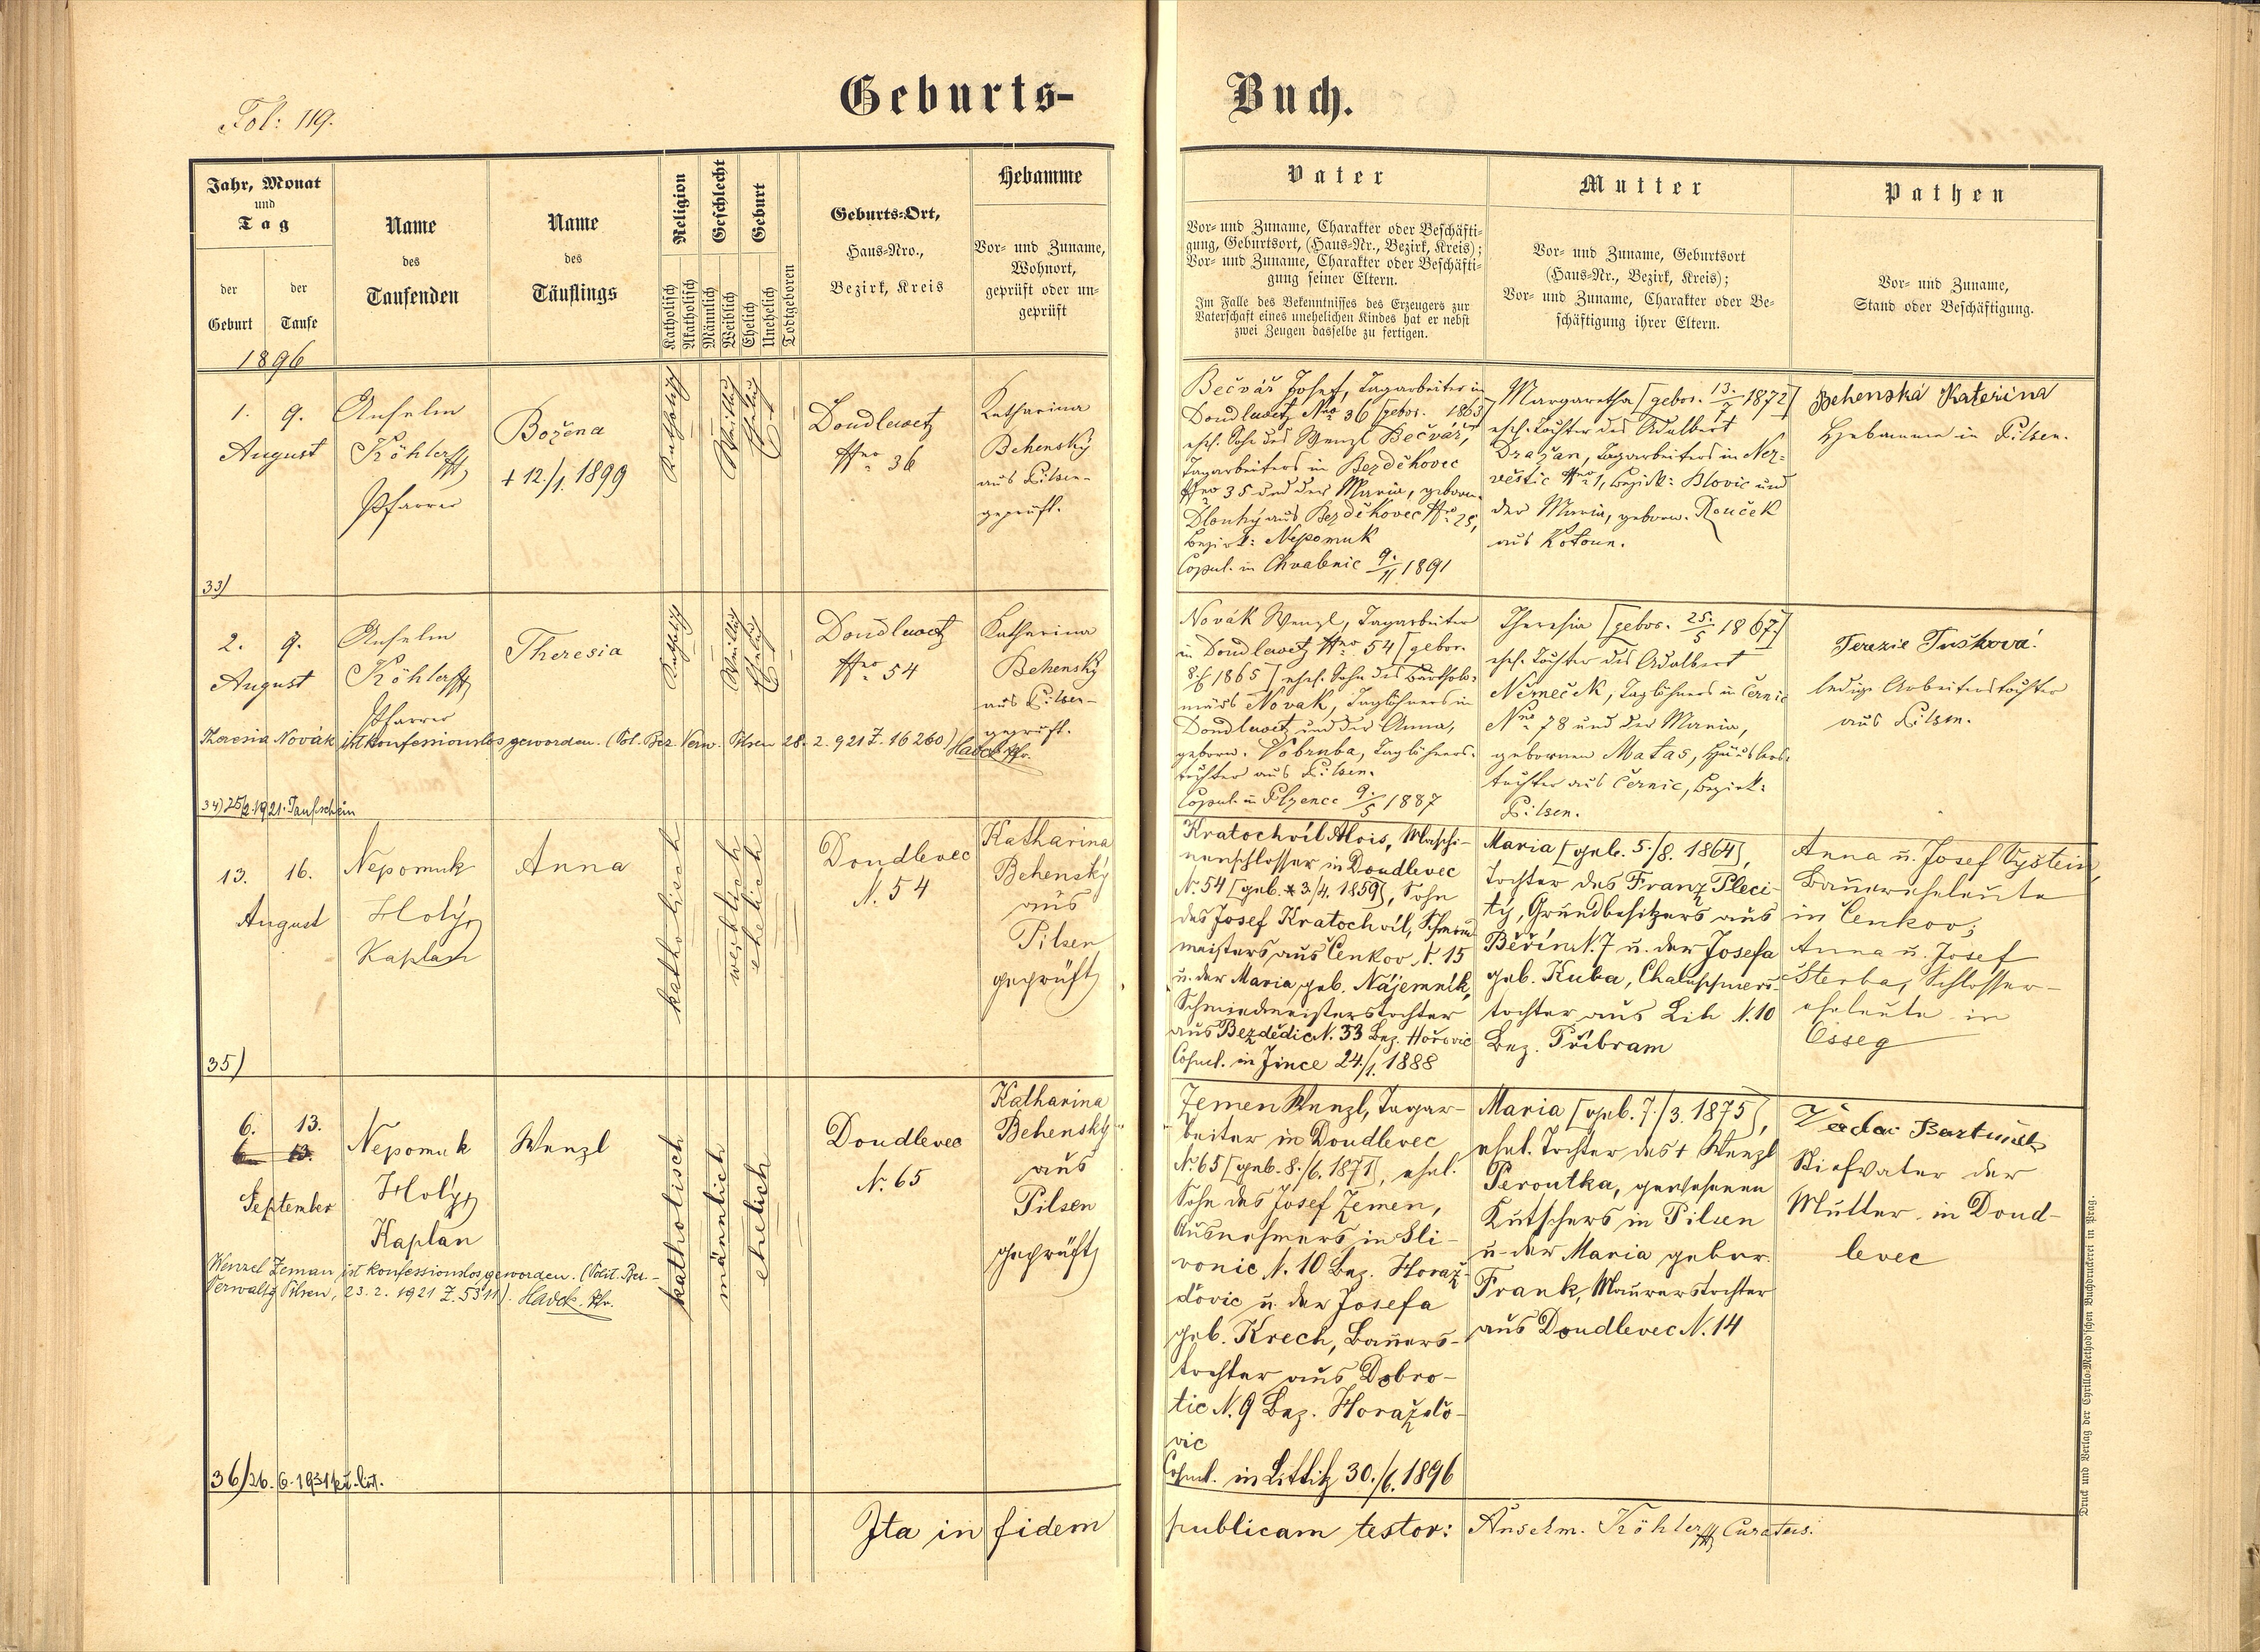 Fol: 119.
Geburts-
Buch.
Jahr, Monat
und
Tag
der
Geburt
der
Taufe
Name
des
Taufenden
Name
des
Täuflings
Religion
Katholisch
Akatholisch
Geschlecht
Männlich
Weiblich
Geburt
Ehelich
Unehelich
Todtgeboren
Geburts-Ort,
Haus-Nro.,
Bezirk, Kreis
Hebamme
Vor- und Zuname,
Wohnort,
geprüft oder un-
geprüft
Vater
Vor- und Zuname, Charakter oder Beschäfti-
gung, Geburtsort, (Haus-Nr., Bezirk, Kreis);
Vor- und Zuname, Charakter oder Beschäfti-
gung seiner Eltern.
Im Falle des Bekenntnisses des Erzeugers zur
Vaterschaft eines unehelichen Kindes hat er nebst
zwei Zeugen dasselbe zu fertigen.
Mutter
Vor- und Zuname, Geburtsort
(Haus-Nr., Bezirk, Kreis);
Vor- und Zuname, Charakter oder Be-
schäftigung ihrer Eltern.
Pathen
Vor- und Zuname,
Stand oder Beschäftigung.
1896
1. 9.
August
Anselm
Köhler
Pfarrer
Božena
+ 12./1. 1899
Katholisch
Weiblich
Ehelich
Doudlewetz
Nro 36
Katharina
Behensky
aus Pilsen-
geprüft.
Bečvář Josef, Tagarbeiter in
Doudlewetz Nro 36 [gebor. 1863]
ehel. Sohn des Wenzl Bečvář,
Tagarbeiters in Bezděkovec
Nro 35 und der Maria, geborn.
Dlouhý aus Bezděkovec Nro 25,
Bezirk: Nepomuk
Copul. in Chvalenic 9./11. 1891
Margaretha [gebor. 13./7. 1872]
ehel. Tochter des Adalbert
Dražan, Tagarbeiters in Nez-
vestic Nro 1, Bezirk: Blovic und
der Maria, geborn. Rouček
aus Kotoun.
Behenská Kateřina
Hebamme in Pilsen.
33)
2. 9.
August
Anselm
Köhler
Pfarrer
Theresia
Katholisch
Weiblich
Ehelich
Doudlewetz
Nro 54
Katharina
Behensky
aus Pilsen-
geprüft.
Theresia Novák ist konfessionslos geworden. (Pol. Bez. Verw. Pilsen 28. 2. 921 Z. 16260) Hadek Pfr.
34) 25/2. 1921. Taufschein
Novák Wenzl, Tagarbeiter
in Doudlewetz Nro 54 [gebor.
1865] ehel. Sohn des Bartholo-
mäus Novak, Taglöhners in
Doudlewetz und der Anna,
geborn. Vobruba, Taglöhners-
tochter aus Pilsen.
Copul. in Plzenec 9./5 1887
Theresia [gebor. 25./5 1867.]
ehel. Tochter des Adalbert
Němeček, Taglöhners in Černic
Nro 78 und der Maria,
gebornen Matas, Häuslers-
tochter aus Černic, Bezirk:
Pilsen.
Terezie Tušková
ledige Arbeiterstochter
aus Pilsen.
13. 16.
August
Nepomuk
Holý
Kaplan
Anna
katholisch
weiblich
ehelich
Doudlevec
N. 54
Katharina
Behenský
aus
Pilsen
geprüft
Kratochvíl Alois, Maschi-
nenschlosser in Doudlevec
N. 54 [geb. 3./4. 1859], Sohn
des Josef Kratochvíl, Schmied-
meisters aus Čenkov N. 15
u. der Maria geb. Nájemník,
Schmiedmeisterstochter
aus Bezdědic N. 33 Bez. Hořovic
Copul. in Jince 24./1. 1888
Maria [geb. 5./8. 1864],
Tochter des Franz Pleci-
tý, Grundbesitzers aus
Běřín N. 7 u. der Josefa
geb. Kuba, Chaluppners-
tochter aus Lih N. 10
Bez. Příbram
Anna u. Josef Vyštein,
Bauerseheleute
in Čenkov;
Anna u. Josef
Šterba, Schlosser-
eheleute in
Osseg
35)
6. 13.
6. 13.
September
Nepomuk
Holý
Kaplan
Wenzl
katholisch
männlich
ehelich
Doudlevec
N. 65
Katharina
Behenský
aus
Pilsen
geprüft
Wenzel Zeman ist konfessionslos geworden. (Polit. Bez.-
Verwaltg Pilsen, 23. 2. 1921 Z. 5311). Hadek. Pfr.
36) 26. 6. 1931
Zemen Wenzl, Tagar-
beiter in Doudlevec
N. 65 [geb. 8./6. 1871], ehel.
Sohn des Josef Zemen,
Ausnehmers in Sli-
vonic N. 10 Bez. Horaž-
dovic u. der Josefa
geb. Krech, Bauers-
tochter aus Dobro-
tic N. 9 Bez. Horaždo-
vic
Copul. in Littitz 30./6. 1896
Maria [geb. 7./3. 1875],
ehel. Tochter des + Wenzl
Peroutka, gewesenen
Kutschers in Pilsen
u. der Maria gebor.
Frank, Maurerstochter
aus Doudlevec N. 14
Bartuněk
Stiefvater der
Mutter in Doud-
levec
Ita in fidem publicam testor: Anselm. Köhler Curatus.
Druck und Verlag der Cyrillo-Method'schen Buchdruckerei in Prag.